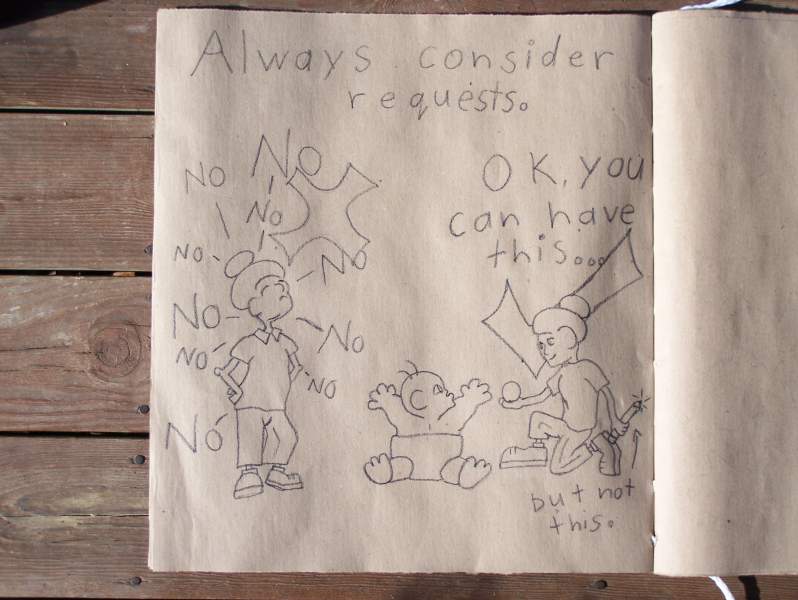 Always consider
requests.
NO NO
NO
NO NO
NO NO
NO NO
NO
OK, you
can have
this...
but not
this.